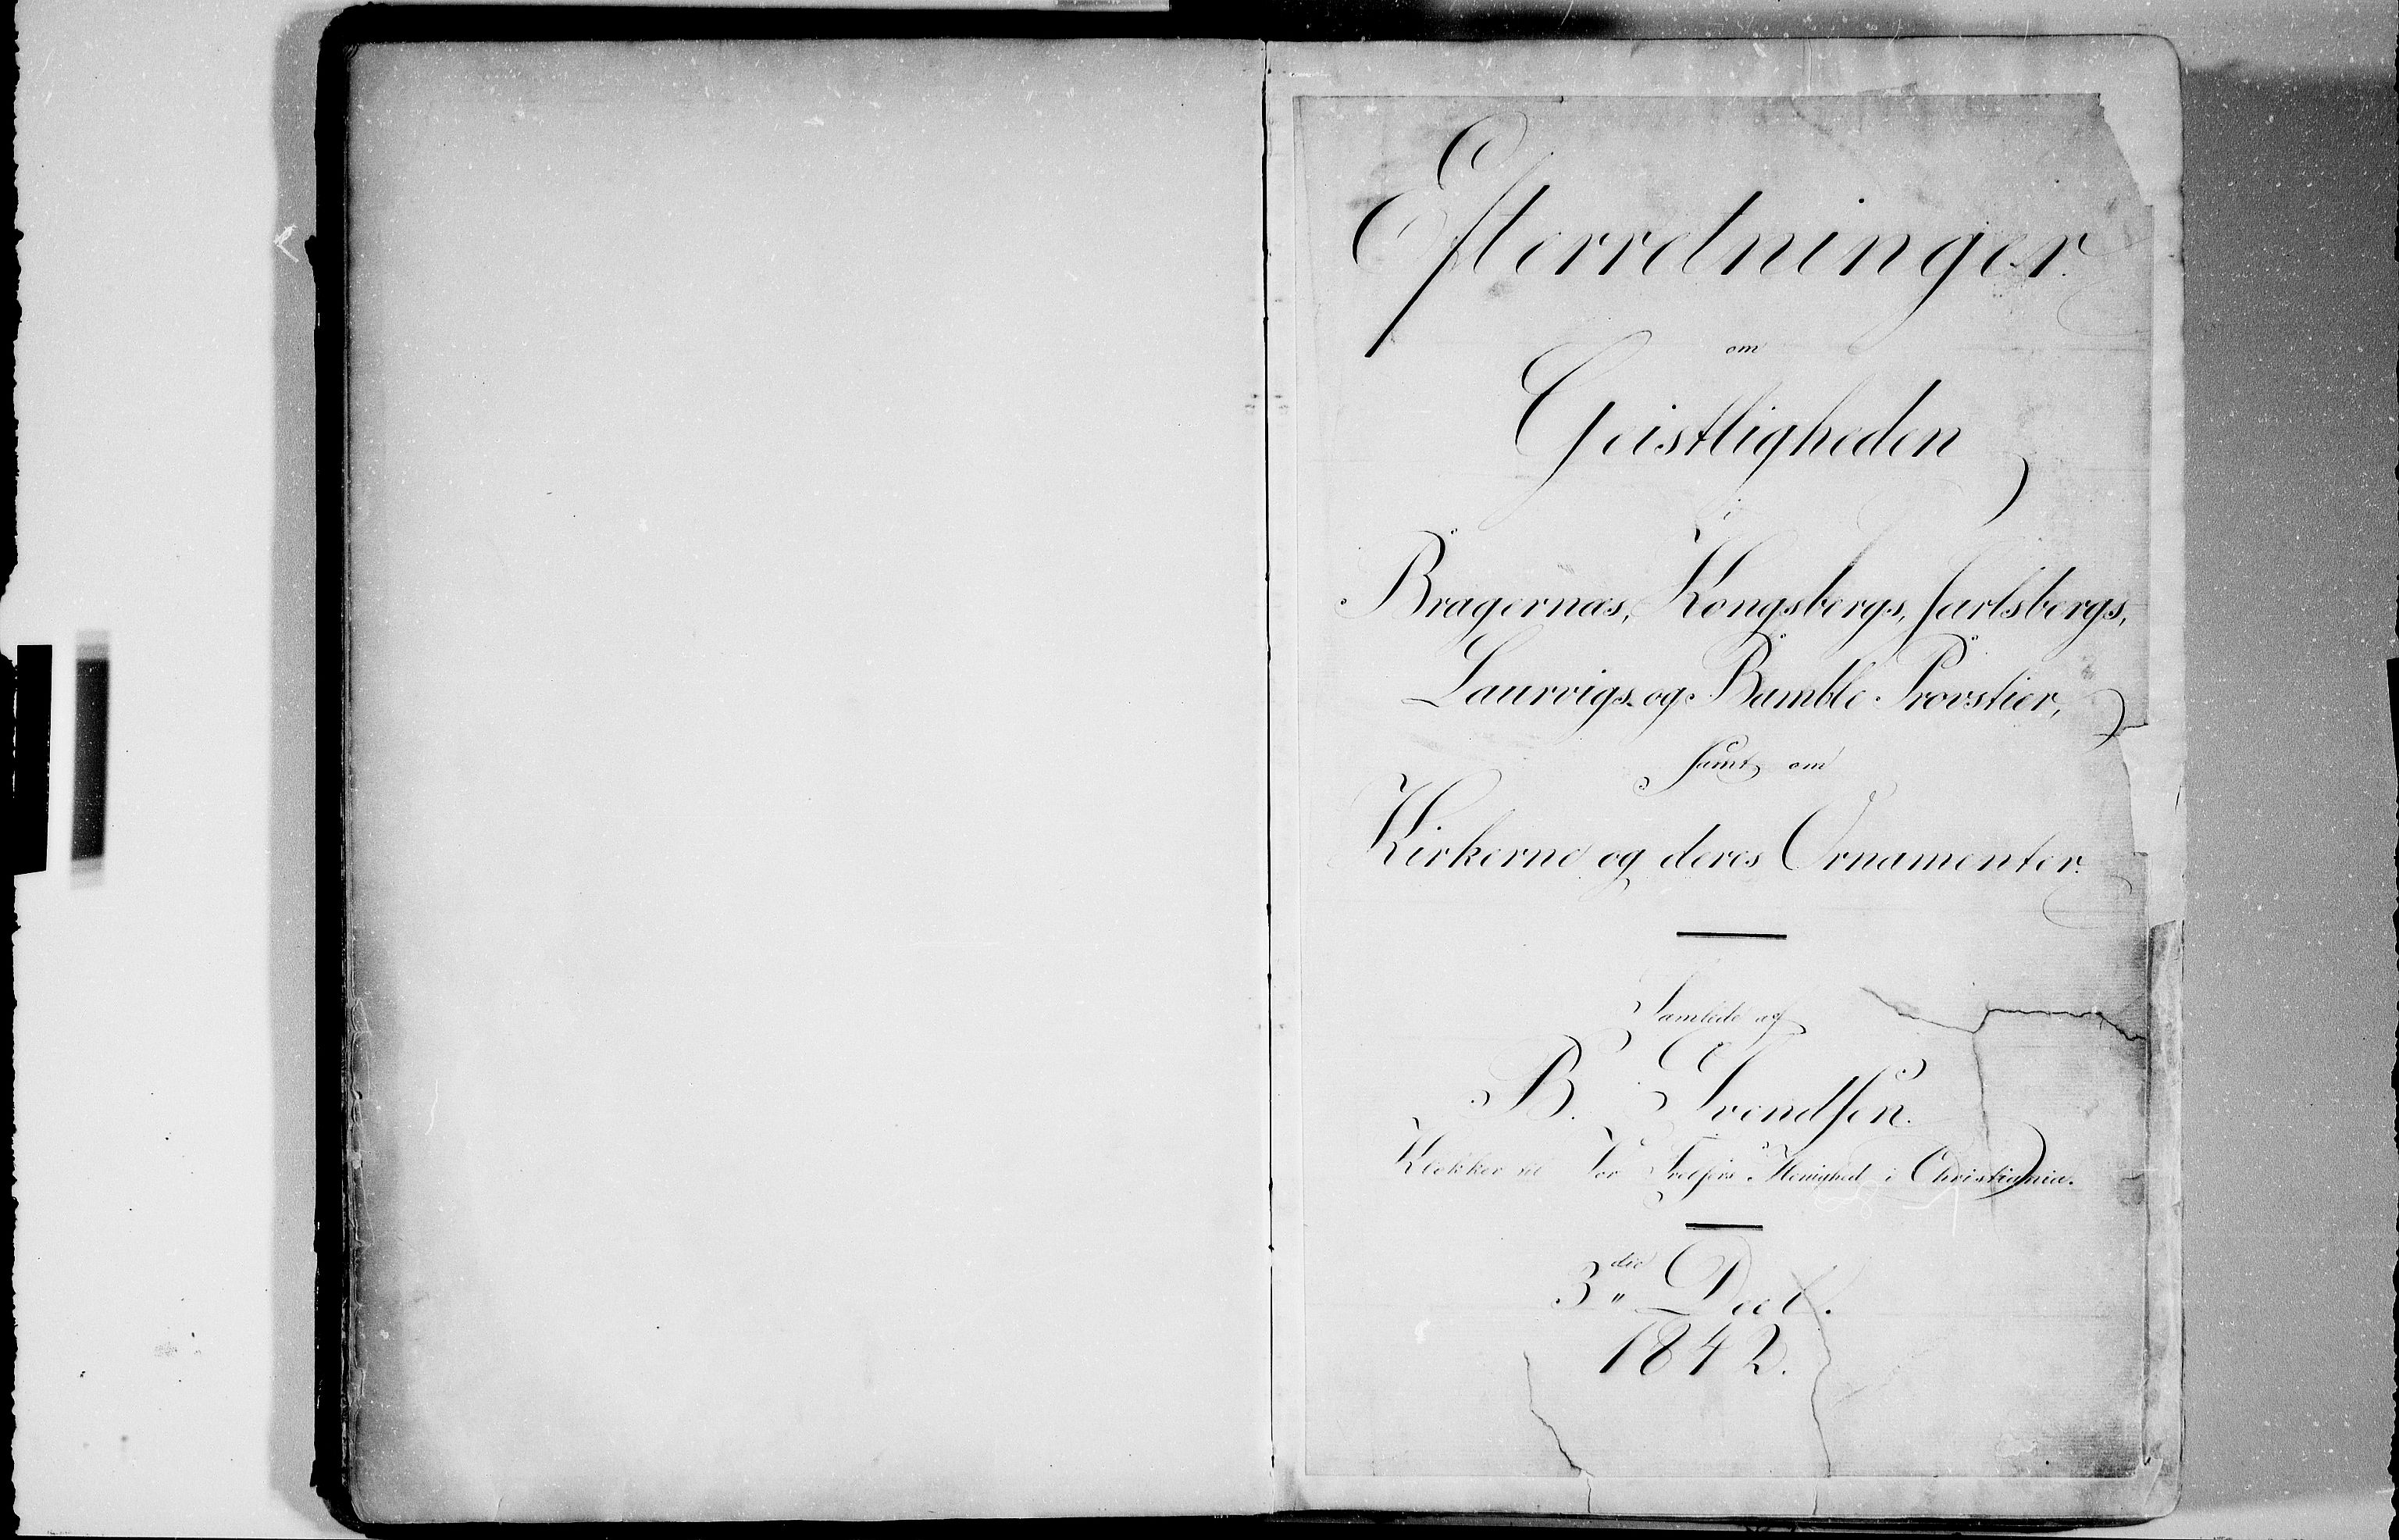 Efterretninger
om
Geistligheden
i
Bragernæs, Kongsbergs, Jarlsbergs,
Laurvigs og Bamble Provstier,
samt om
Kirkerne og deres Ornamenter.
Samlede af
B. Svendsen.
Klokker til Vor Frelsers Menighed i Christiania.
3die Deel.
1842.